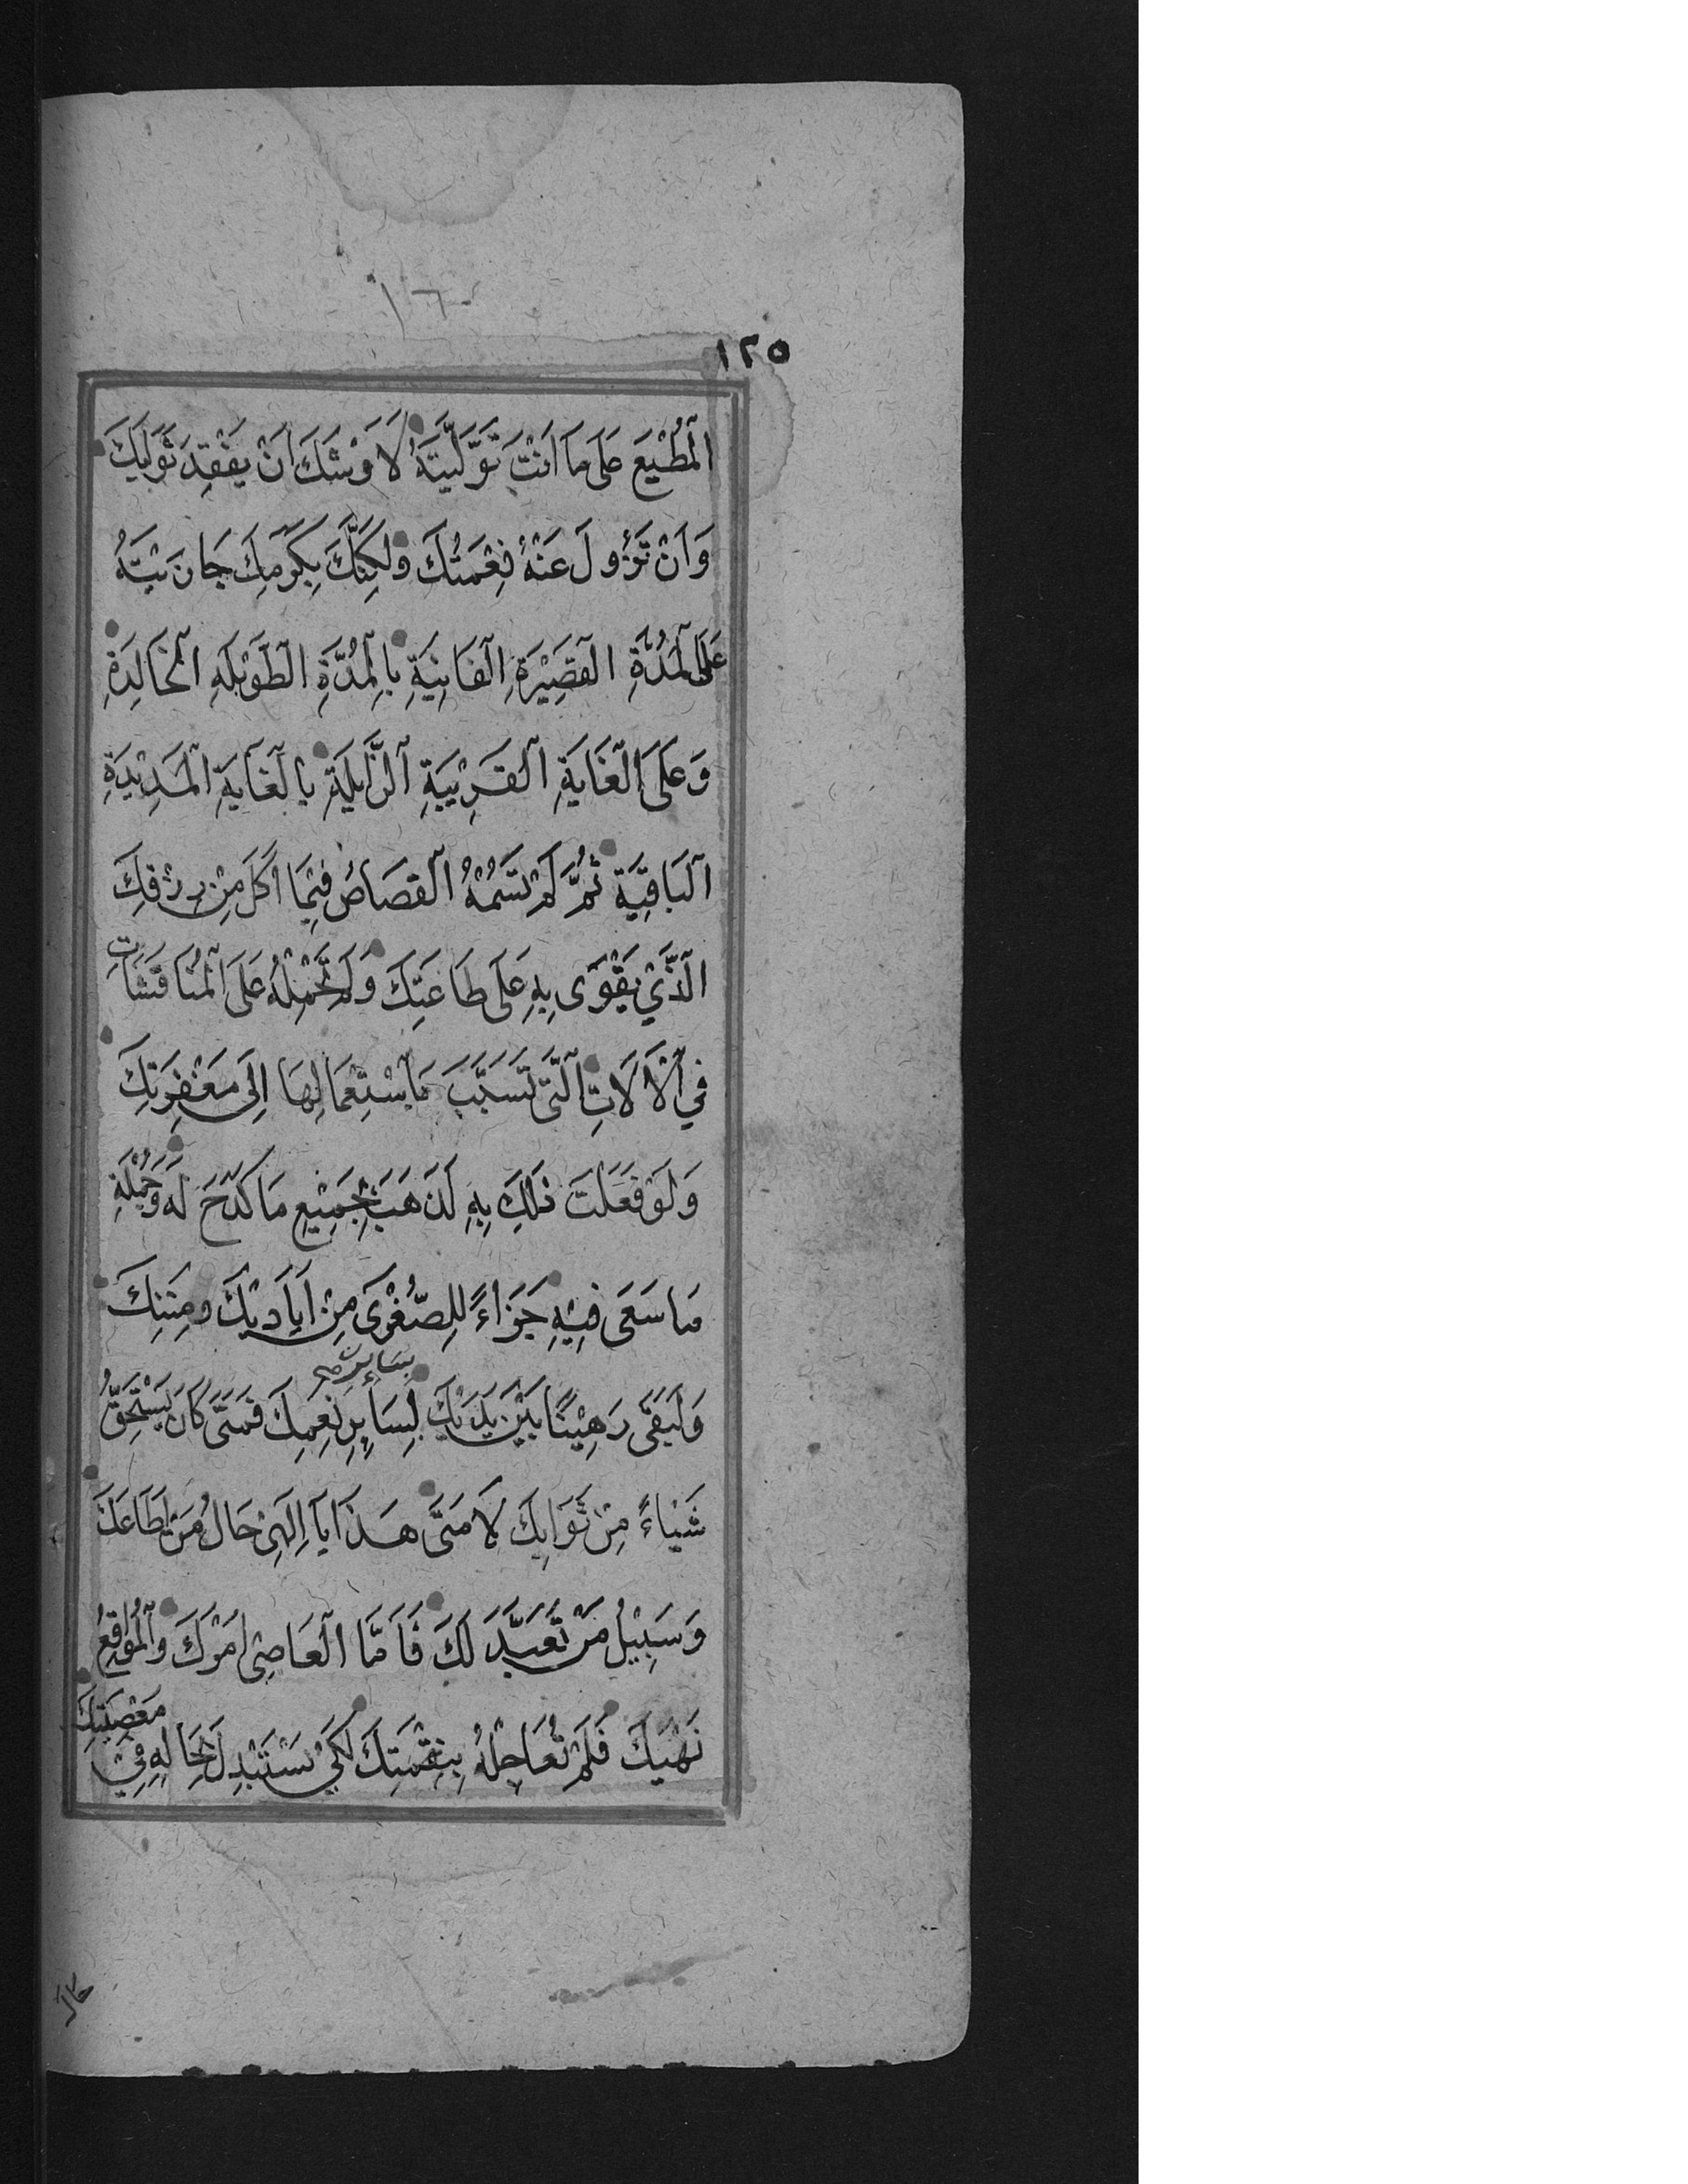 ١٦
١٢٥
اَلْمُطِيْعَ عَلَى مَا اَنْتَ تَوَلَّيْتَهُ لَاَوْشَكَ اَنْ يَفْقِدَ ثَوَابَكَ
وَاَنْ تَزُوْلَ عَنْهُ نِعْمَتُكَ وَلٰكِنَّكَ بِكَرَمِكَ جَازَيْتَهُ
عَلَى الْمُدَّةِ الْقَصِيْرَةِ الْفَانِيَةِ بِالْمُدَّةِ الطَّوِيْلَةِ الْخَالِدَةِ
وَعَلَى الْغَايَةِ الْقَرِيْبَةِ الزَّايِلَةِ بِالْغَايَةِ الْمَدِيْدَةِ
الْبَاقِيَةِ ثُمَّ لَمْ تَسُمْهُ الْقِصَاصَ فِيْمَا اَكَلَ مِنْ رِزْقِكَ
الَّذِيْ يَقْوَى بِهِ عَلَى طَاعَتِكَ وَلَمْ تَحْمِلْهُ عَلَى الْمُنَاقَشَاتِ
فِي الْاٰلَاتِ الَّتِيْ تَسَبَّبَ بِاسْتِعْمَالِهَا اِلَى مَغْفِرَتِكَ
وَلَوْ فَعَلْتَ ذٰلِكَ بِهِ لَذَهَبَ بِجَمِيْعِ مَا كَدَحَ لَهُ وَجُمْلَةِ
مَا سَعَى فِيْهِ جَزَاءً لِلصُّغْرَى مِنْ اَيَادِيْكَ وَمِنَنِكَ
بِسَايِرِ
وَلَبَقِيَ رَهِيْنًا بَيْنَ يَدَيْكَ لِسَايِرِ نِعَمِكَ فَمَتَى كَانَ يَسْتَحِقُّ
شَيْاءً مِنْ ثَوَابِكَ لَا مَتَى هَذَا يَا اِلٰهِيْ حَالُ مَنْ اَطَاعَكَ
وَسَبِيْلُ مَنْ تَعَبَّدَ لَكَ فَاَمَّا الْعَاصِيْ اَمْرَكَ وَالْمُوَاقِعُ
نَهْيَكَ فَلَمْ تُعَاجِلْهُ بِنِقْمَتِكَ لِكَيْ يَسْتَبْدِلَ بِحَالِهِ فِيْ مَعْصِيَتِكَ
حال